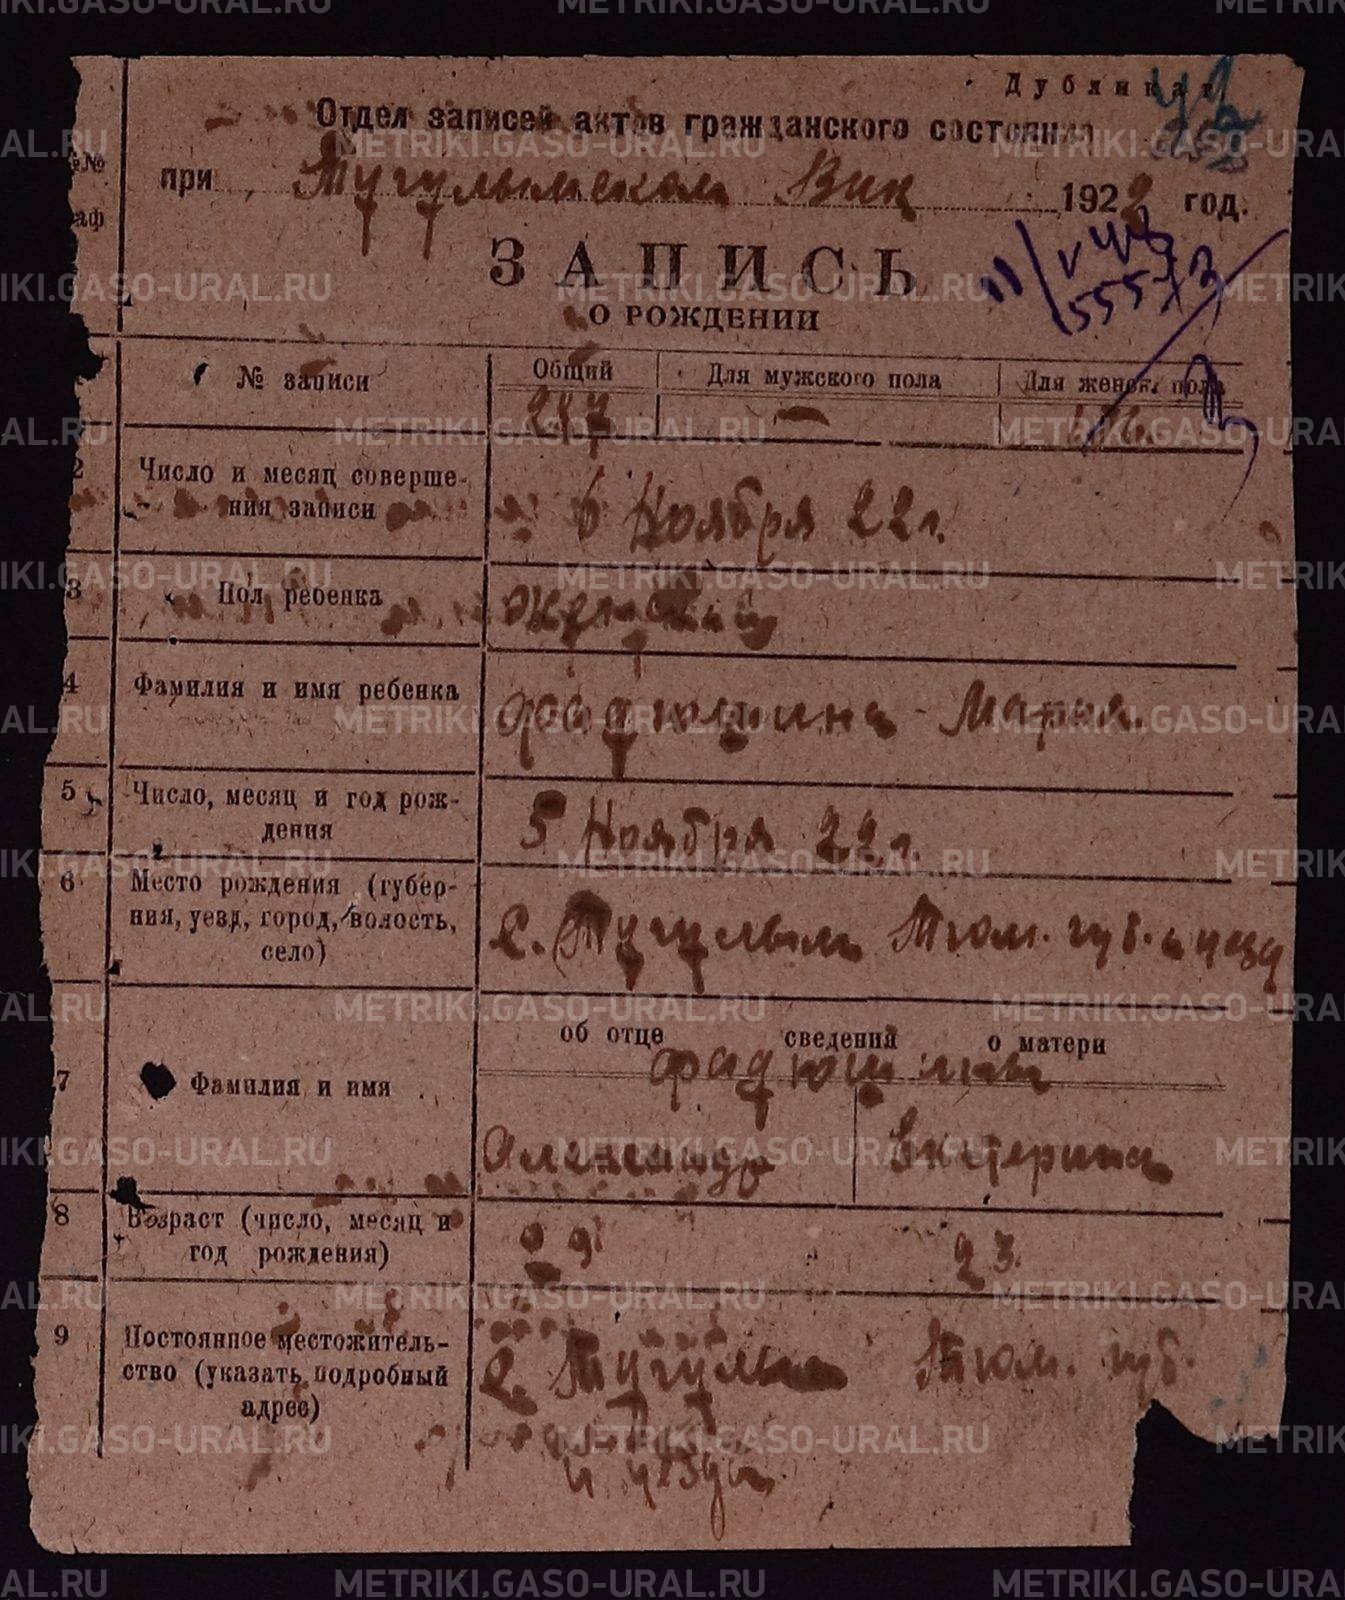 Дубликат
Отдел записей актов гражданского состояния
при Тугулымском Вик 1922 год.
ЗАПИСЬ
О РОЖДЕНИИ
№ записи
Общий Для мужского пола Для женск. пола
287 —
2 Число и месяц соверше-
ния записи
6 Ноября 22 г.
3 Пол ребенка
женский
4 Фамилия и имя ребенка
Фадюшина Мария.
5 Число, месяц и год рож-
дения
5 Ноября 22 г.
6 Место рождения (губер-
ния, уезд, город, волость,
село)
с. Тугулым Тюм. губ. и уезд
об отце сведения о матери
7 Фамилия и имя
Фадюшины
Александр Екатерина
8 Возраст (число, месяц и
год рождения)
29 23.
9 Постоянное местожитель-
ство (указать подробный
адрес)
с. Тугулым Тюм. губ.
и уезда
METRIKI.GASO-URAL.RU